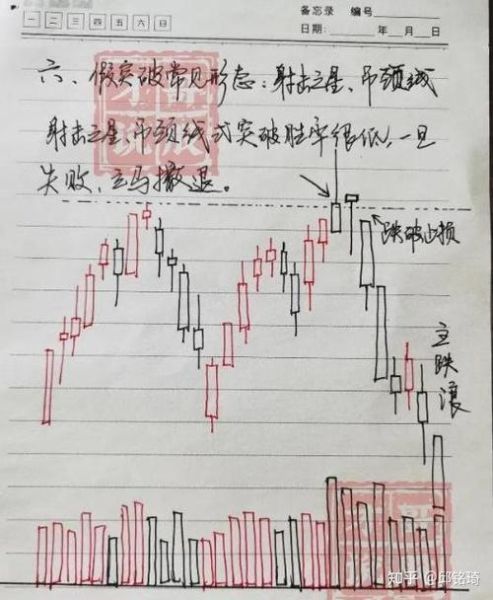 备忘录 编号
一 二 三 四 五 六 日
日期: 年 月 日
六、假突破常见形态:射击之星、吊颈线
射击之星、吊颈线式突破胜率很低,一旦
失败,立马撤退。
跌破止损
主跌浪
知乎 @邱铭琦